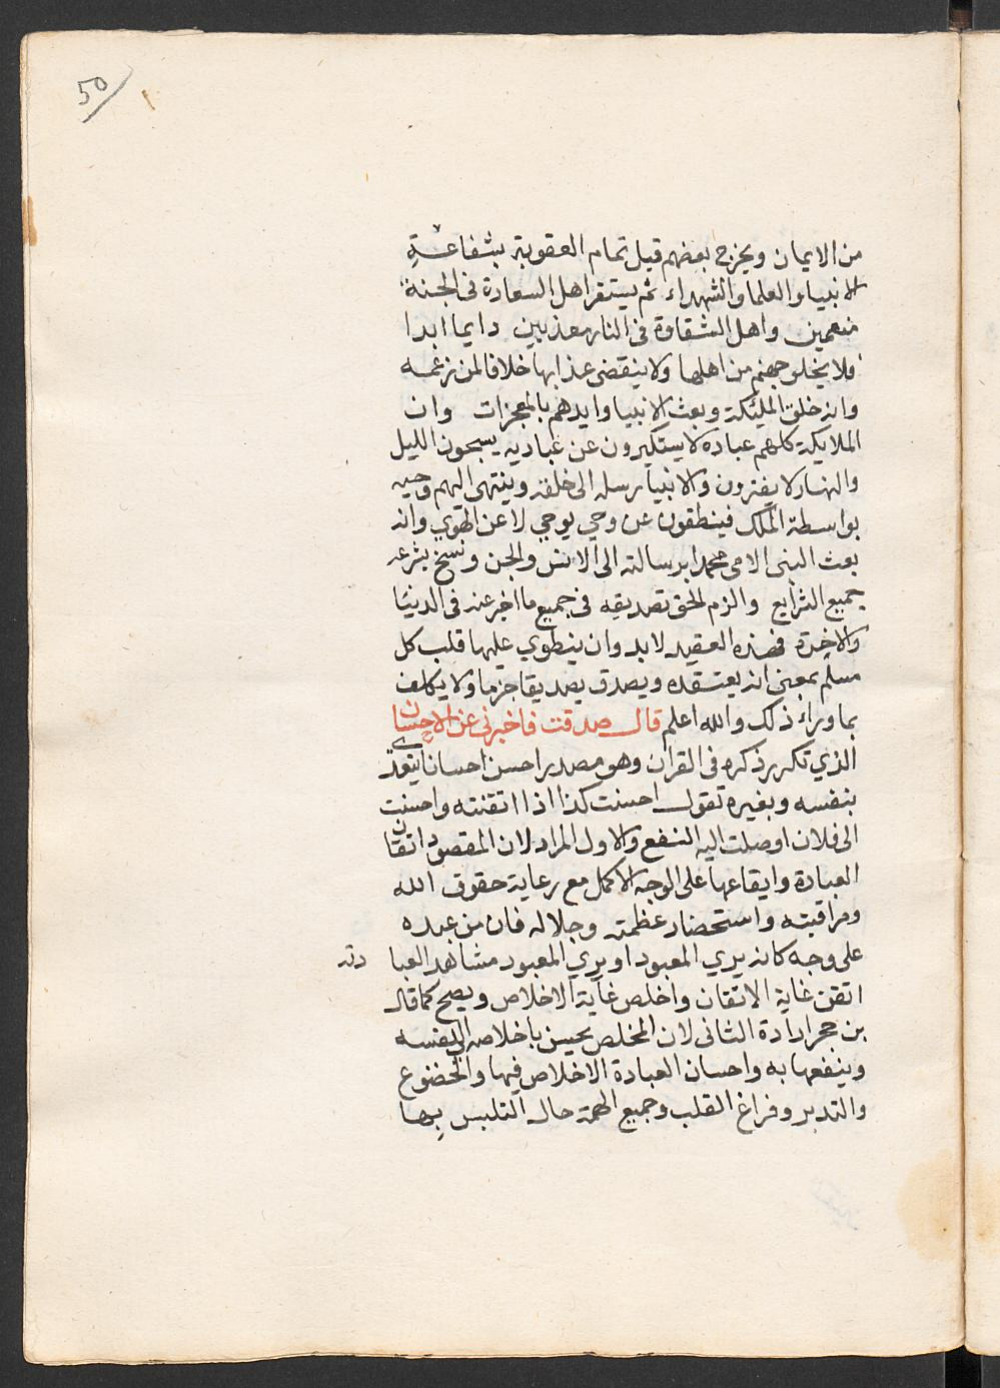 50
من الايمان ويخرج بعضهم قبل تمام العقوبة بشفاعة
الانبيا والعلما والشهداء ثم يستقر اهل السعادة فى الجنة
منعمين واهل الشقاوة فى النار معذبين دايما ابدا
فلا يخلو جهنم من اهلها ولا ينقضى عذابها خلافا لمن زعمه
وانه خلق المليكة وبعث الانبيا وايدهم بالمعجزات وان
الملايكة كلهم عباده لا يستكبرون عن عبادته يسبحون الليل
والنهار لا يفترون والانبيا رسله الى خلقه وينتهى اليهم وحيه
بواسطة الملك فينطقون عن وحي يوحي لا عن الهوي وانه
بعث النبى الامى محمدا برسالته الى الانس والجن ونسخ بشرعه
جميع الشرايع والزم الخق تصديقه فى جميع ما اخبر عنه فى الدنيا
والاخرة فهذه العقيد لابد وان ينطوي عليها قلب كل
مسلم بمعنى انه يعتقده ويصدق به تصديقا جزما ولا يكلف
بما وراء ذلك والله اعلم قال صدقت فاخبرنى عن الاحسان
الذي تكرر ذكره فى القران وهو مصدر احسن احسانا يتعدي
بنفسه وبغيره تقول احسنت كذا اذا اتقنته واحسنت
الى فلان اوصلت اليه النفع والاول المراد لان المقصود اتقان
العبادة وايقاعها على الوجه الاكمل مع رعاية حقوق الله
ومراقبته واستحضار عظمته وجلاله فان من عبده
على وجه كانه يري المعبود او يري المعبود مشاهد العبا دته
اتقن غاية الاتقان واخلص غاية الاخلاص ويصح كما قال
بن حجر ارادة الثانى لان المخلص يحسن باخلاصه الى نفسه
وينفعها به واحسان العبادة الاخلاص فيها والخضوع
والتدبر وفراغ القلب وجميع الهمة حال التلبس بها